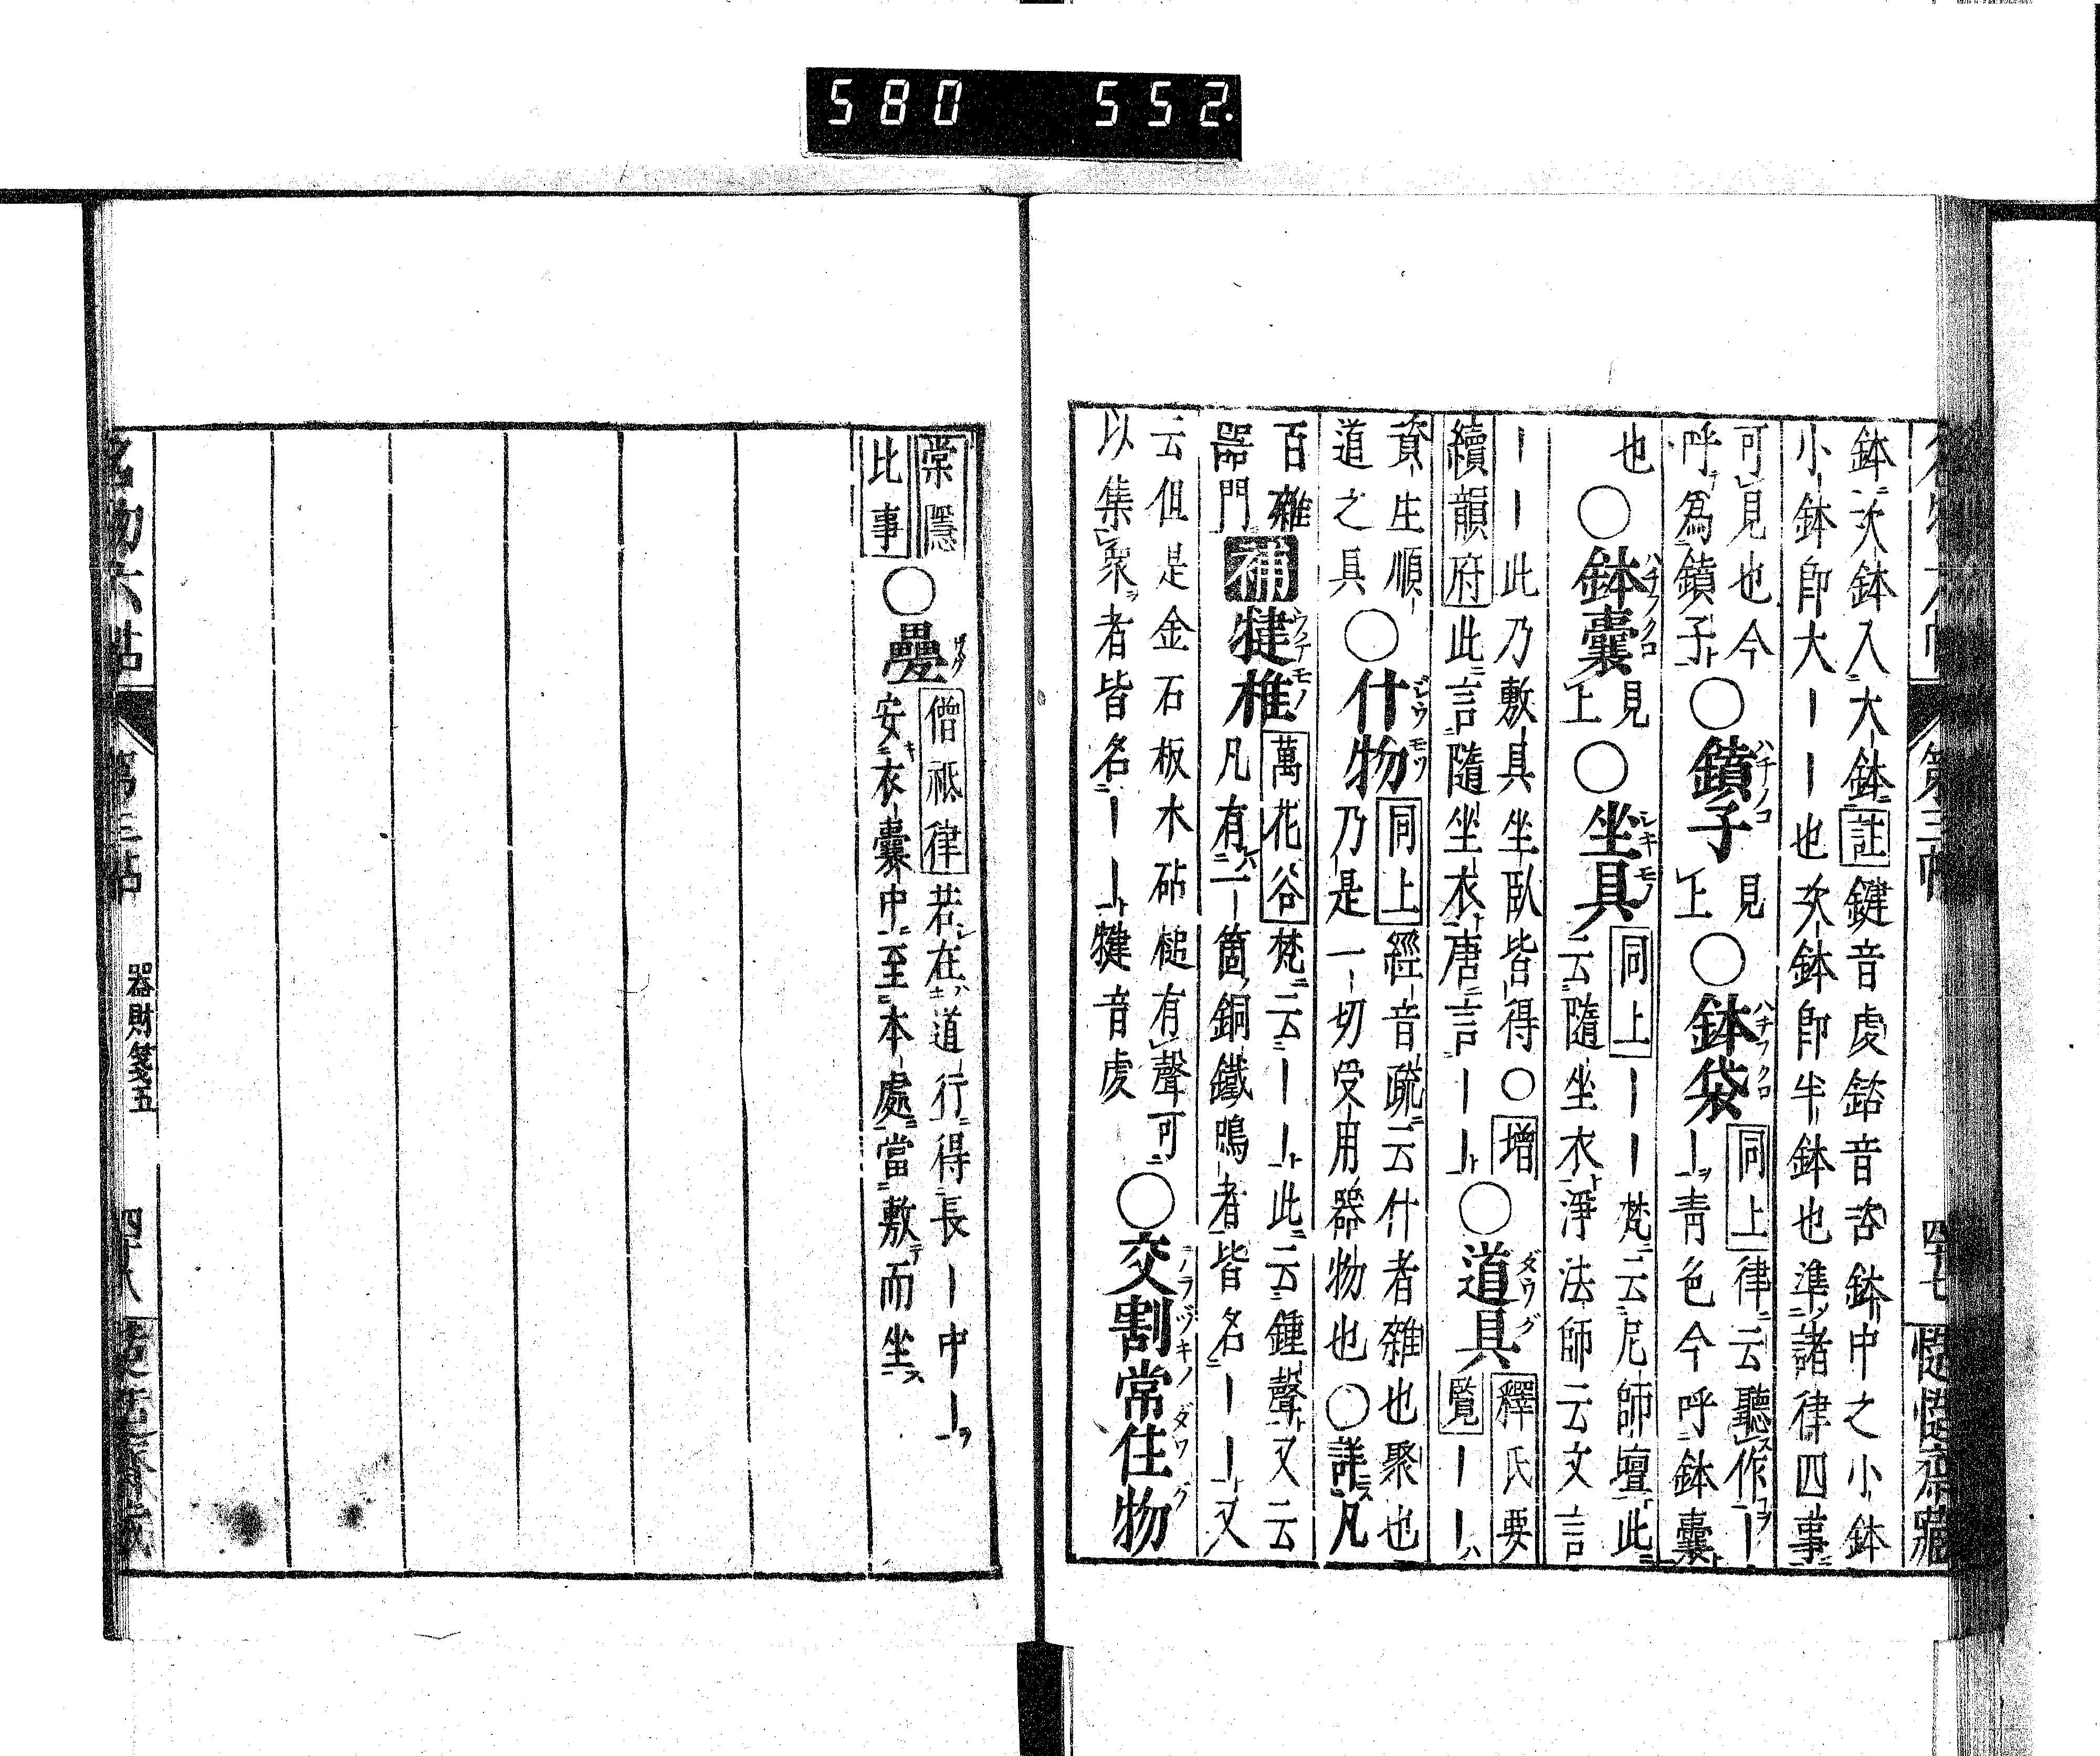 580 552.
鉢次鉢入大鉢註鍵音虔䥈音咨鉢中之小鉢
小鉢卽大丨丨也次鉢卽半鉢也準諸律四事
可見也今
呼爲鐼子○鐼子見上○鉢袋同上律云聽作丨
丨青色今呼鉢囊
也○鉢囊見上○坐具同上丨丨梵云尼師壇此
云隨坐衣淨法師云文言
丨丨此乃敷具坐臥皆得○增
續韻府此言隨坐衣唐言丨丨○道具釋氏要
覧丨丨
資生順
道之具○什物同上經音疏云什者雜也聚也
乃是一切受用器物也○詳凡
百雜
器門補犍椎萬花谷梵云丨丨此云鍾聲又云
凡有二箇銅鐵鳴者皆名丨丨又
云但是金石板木砧槌有聲可
以集衆者皆名丨丨犍音虔○交割常住物
常隱
比事○疊僧祇律若在道行得長丨中丨
安衣囊中至本處當敷而坐
名物六帖 第三帖 器財箋五 四十八